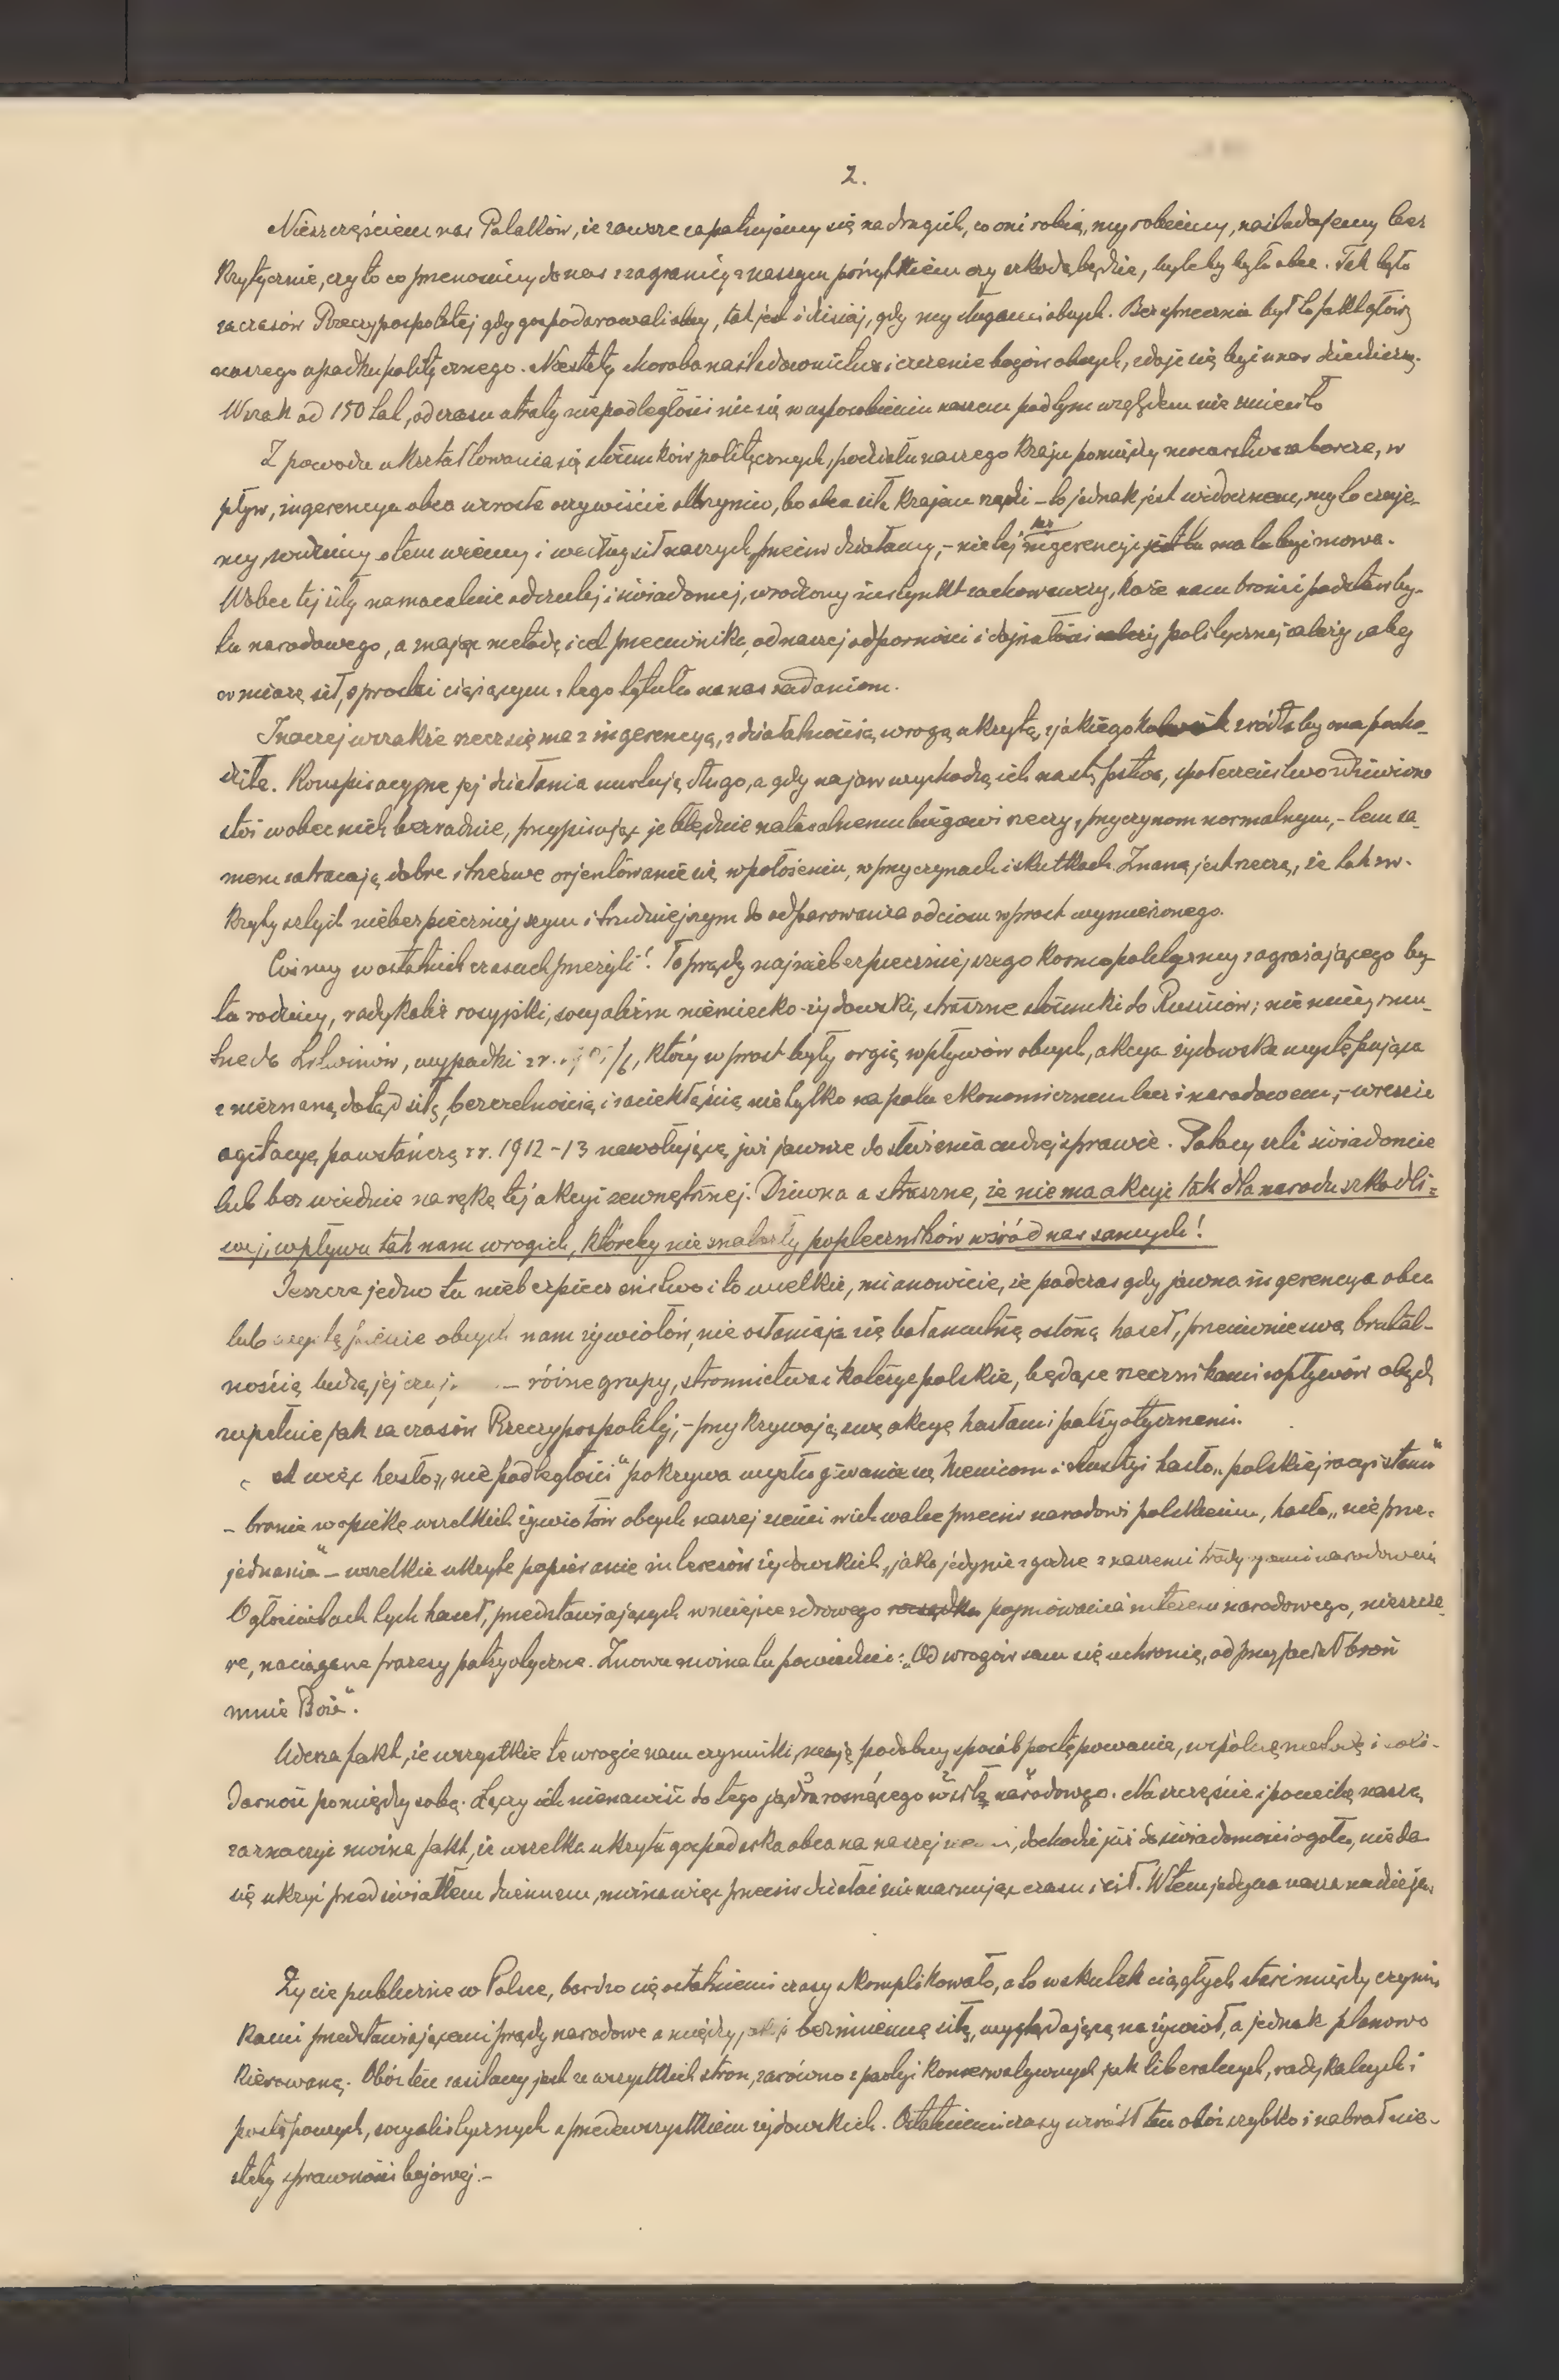 2.
Nieszczęściem nas Polaków, że zawsze zapatrujemy się na drugich, co oni robią, my robiemy, naśladujemy bez
krytycznie, czy to co przenosimy do nas z zagranicy z naszym pożytkiem czy szkodą będzie, byleby było obce. Tak było
za czasów Rzeczypospolitej gdy gospodarowali obcy, tak jest i dzisiaj, gdy my sługami obcych. Bezsprzecznie był to fakt główny
naszego upadku politycznego. Niestety choroba naśladownictwa i czczenie bogów obcych, zdaje się być u nas dziedziczną.
Wszak od 150 lat, od czasu utraty niepodległości nic się w usposobieniu naszem pod tym względem nie zmieniło
Z powodu ukształtowania się stosunków politycznych, podziału naszego kraju pomiędzy mocarstwa zaborcze, w
pływ, ingerencya obca wzrosła oczywiście olbrzymio, bo obca siła krajem rządzi – to jednak jest widocznem, my to czuje-
my, widzimy o tem wiemy i według sił naszych przeciw działamy, – nie o tej też ingerencyi ma tu być mowa.
Wobec tej siły namacalnie odczutej i świadomej, wrodzony instynkt zachowawczy, każe nam bronić podstaw by-
tu narodowego, a znając metodę i cel przeciwnika, od naszej odporności i dojrzałości politycznej zależy, aby
w miarę sił, sprostać ciążącym z tego tytułu na nas zadaniom.
Inaczej wszakże rzecz się ma z ingerencyą, z działalnością wrogą ukrytą, z jakiegokolwiek źródła by ona pocho-
dziła. Konspiracyjne jej działania nurtują długo, a gdy na jaw wychodzą ich następstwa, społeczeństwo zdziwione
stoi wobec nich bezradnie, przypisując je błędnie naturalnemu biegowi rzeczy, przyczynom normalnym, – tem sa-
mem zatracają dobre i trzeźwe orjentowanie się w położeniu, w przyczynach i skutkach. Znaną jest rzeczą, że tak zw.
kryty sztych niebezpieczniejszym i trudniejszym do odparowania od ciosu wprost wymierzonego.
Cośmy w ostatnich czasach przeżyli! To prądy najniebezpieczniejszego kosmopolityzmu zagrażającego by-
tu rodziny, radykalizm rosyjski, socyalizm niemiecko-żydowski, straszne stosunki do Rusinów; nie mniej smu-
tne do Litwinów, wypadki z r. 1905/6, który wprost były orgią wpływów obcych, akcya żydowska występująca
z nieznaną dotąd siłą, bezczelnością i zaciekłością nie tylko na polu ekonomicznem lecz i narodowem, – wreszcie
agitacyę powstańczą z r. 1912–13 nawołującą już jawnie do służenia cudzej sprawie. Polacy szli świadomie
lub bezwiednie na rękę tej akcyi zewnętrznej. Dziwna a straszne, że niema akcyi tak dla narodu szkodli=
wej, wpływu tak nam wrogich, któreby nie znalazły popleczników wśród nas samych!
Jeszcze jedno tu niebezpieczeństwo i to wielkie, mianowicie, że podczas gdy jawna ingerencya obca
lub występienie obcych nam żywiołów, nie osłaniają się bałamutną osłoną haseł, przeciwnie swą brutal-
nością budzą jej – różne grupy, stronnictwa i koterye polskie, będące rzecznikami wpływów obcych,
zupełnie jak za czasów Rzeczypospolitej, – przykrywają swą akcyę hasłami patryotycznemi.
więc hasło „niepodległości" pokrywa wysługiwanie się Niemcom i Austryi hasło „polskiej racyi stanu"
– branie w opiekę wszelkich żywiołów obcych naszej ziemi i ich walce przeciw narodowi polskiemu, hasła „nie prze-
jednania" – wszelkie ukryte popieranie interesów żydowskich „jako jedynie zgodne z naszemi tradycyami narodowemi
O głosicielach tych haseł, przedstawiających w miejsce zdrowego rozsądku pojmowania interesu narodowego, nieszcze-
re, naciągane frazesy patryotyczne. Znowu można tu powiedzieć: „Od wrogów sam się uchronię, od przyjaciół broń
mnie Boże".
Uderza fakt, że wszystkie te wrogie nam czynniki, mają podobny sposób postępowania, wspólną metodę i soli-
darność pomiędzy sobą. Łączy ich nienawiść do tego jądra rosnącego w siłę narodowego. Na szczęście i pociechę naszą
zaznaczyć można fakt, że wszelka ukryta gospodarka obca na naszej ziemi, dochodzi już do świadomości ogółu, nie da
się ukryć przed światłem dziennem, można więc przeciw działać nie marnując czasu i sił. W tem jedyna nasza nadzieja.
Życie publiczne w Polsce, bardzo się ostatniemi czasy skomplikowało, a to wskutek ciągłych starć między czynni-
kami przedstawiającemi prądy narodowe a między jakąś bezimienną siłą, wyglądającą na żywioł, a jednak planowo
kierowaną. Obóz ten zasilany jest ze wszystkich stron, zarówno z partyi konserwatywnych jak liberalnych, radykalnych i
postępowych, socyalistycznych a przedewszystkiem żydowskich. Ostatniemi czasy wzrósł ten obóz szybko i nabrał nie-
stety sprawności bojowej.–